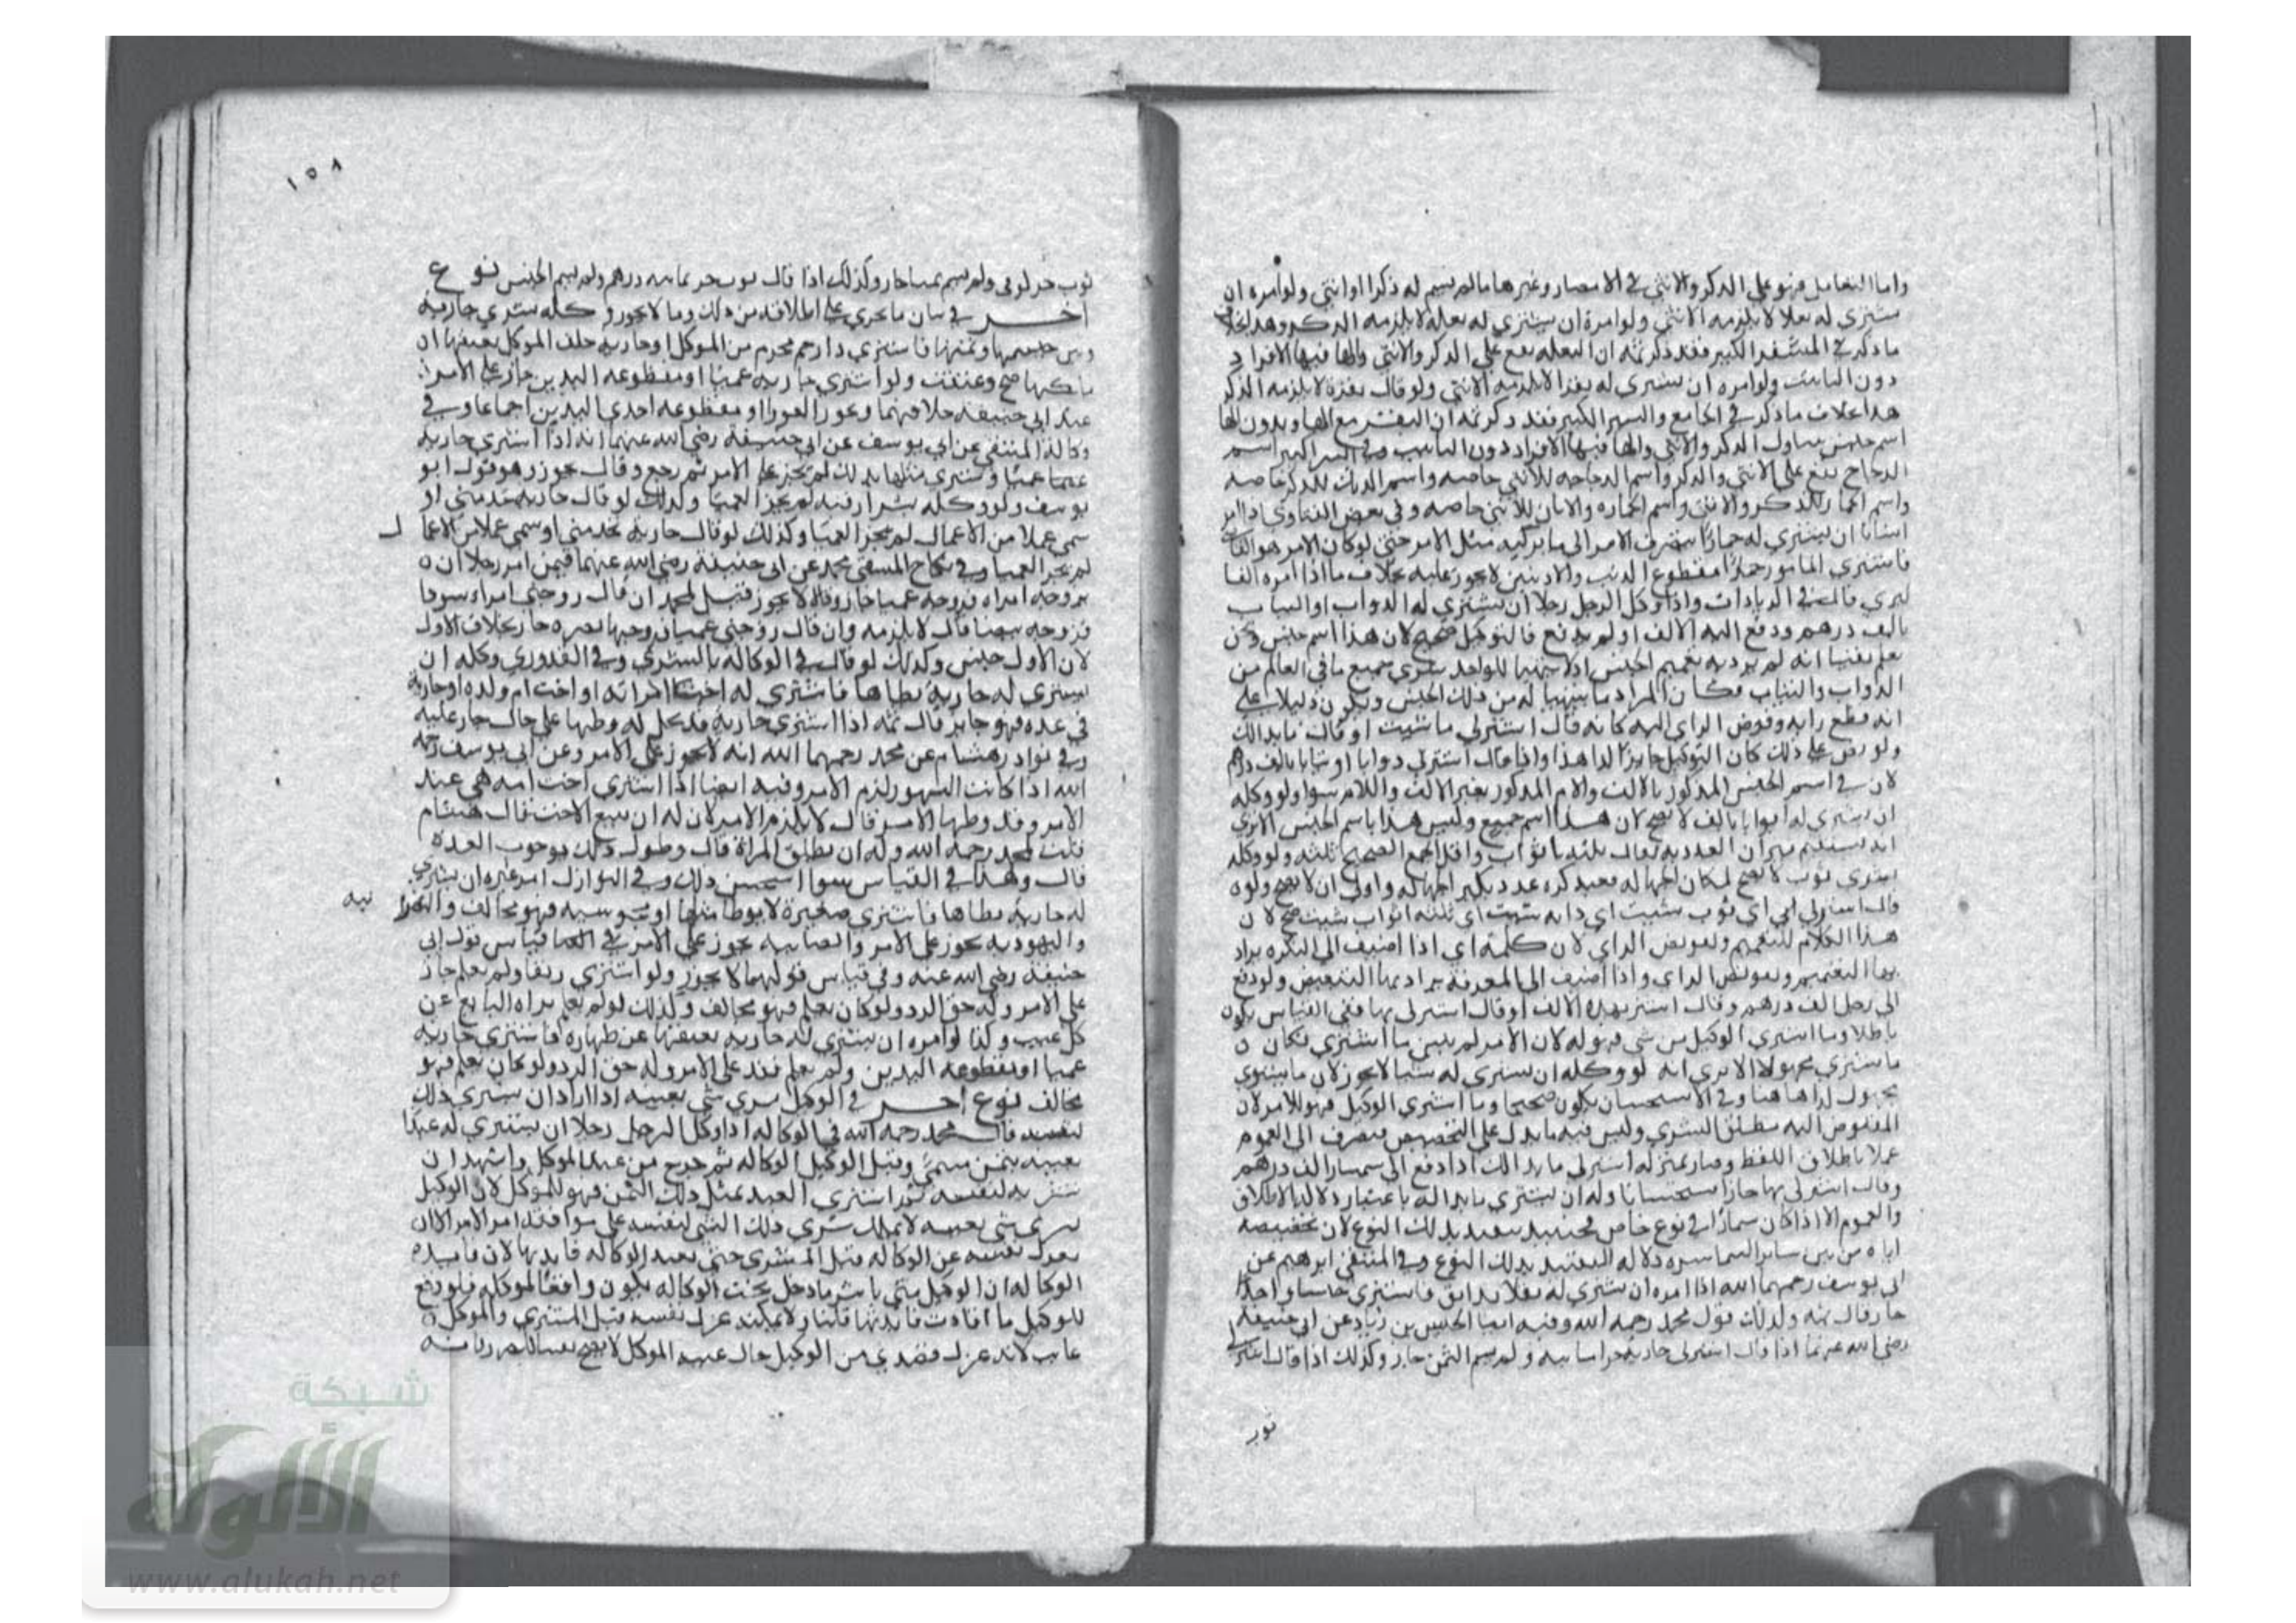 واما التعامل فهو على الذكر والانثى في الامصار وغيرها مالم يسم له ذكرا او انثى ولو امره ان
يشتري له بغلا لا يلزمه الانثى ولو امره ان يشتري له بغلة لا يلزمه الذكر وهذا بخلاف
ما ذكر في الكبير فقد ذكر ثمه ان البغله يقع على الذكر والانثى والها فيها للافراد
دون التانيث ولو امره ان يشتري له بقرا لا يلزمه الانثى ولو قال بقرة لا يلزمه الذكر
هذا بخلاف ما ذكر في الجامع والسير الكبير فقد ذكر ثمه ان البقر مع الها وبدون الها
اسم جنس يتناول الذكر والانثى والها فيها للافراد دون التانيث وفي السير الكبير اسم
الدجاج يقع على الانثى والذكر واسم الدجاجه للانثى خاصه واسم الديك للذكر خاصه
واسم الحمار للذكر والانثى واسم الحماره والاتان للانثى خاصه وفي بعض الفتاوى اذا امر
انسانا ان يشتري له حمارا ينصرف الامر الى ما يركبه مثل الامر حتى لو كان الامر هو القاضي
فاشترى المامور حمارا مقطوع الذنب والاذنين لا يجوز عليه بخلاف ما اذا امره
قال في الزيادات واذا وكل الرجل رجلا ان يشتري له الدواب او الثياب
بالف درهم ودفع اليه الالف او لم يدفع فالتوكيل صحيح لان هذا اسم جنس ونحن
نعلم يقينا انه لم يرد به تعميم الجنس اذ لا يتهيا للواحد شرى جميع ما في العالم من
الدواب والثياب فكان المراد ما يتهيا له من ذلك الجنس ويكون دليلا على
انه قطع رايه وفوض الراي اليه كانه قال اشتر لي ما شيت او قال ما بدالك
ولو نص على ذلك كان التوكيل جايزا كذا هذا واذا قال اشتر لي دوابا او ثيابا بالف درهم
لان في اسم الجنس المذكور بالالف واللام المذكور بغير الالف واللام سوا ولو وكله
ان يشتري له اثوابا بالف لا يصح لان هذا اسم جميع وليس هذا باسم الجنس الا ترى
انه يستقيم قران العدد به يقال ثلثه اثواب واقل الجمع الصحيح ثلثه ولو وكله
بشرى ثوب لا يصح لمكان الجهاله فعند ذكره عدد بكثير الجهاله واولى ان لا يصح ولو
قال اشتر لي اي ثوب شيت اي دابه شيت اي ثلثه اثواب شيت صح لان
هذا الكلام للتعميم وتفويض الراي لان كلمة اي اذا اضيف الى النكره يراد
بها التعميم وتفويض الراي واذا اضيف الى المعرفة يراد بها التبعيض ولو دفع
الى رجل الف درهم وقال اشتر بهذه الالف او قال اشتر لي بها ففي القياس يكون
باطلا وما اشترى الوكيل من شي فهو له لان الامر لم يبين ما اشترى فكان
ما يشتري مجهولا الا ترى انه لو وكله ان يشتري له شيا لا يجوز لان ما يشتري
مجهول كذا هاهنا وفي الاستحسان يكون صحيحا وما اشترى الوكيل فهو للامر لان
المفوض اليه مطلق الشرى وليس فيه ما يدل على التخصيص فينصرف الى العموم
عملا باطلاق اللفظ وصار بمنزلة اشتر لي ما بدالك اذا دفع الى سمسار الف درهم
وقال اشتر لي بها جاز استحسانا وله ان يشتري ما بداله باعتبار دلاله الاطلاق
والعموم الا اذا كان سمسارا في نوع خاص فحينيذ يتقيد بذلك النوع لان تخصيصه
اياه من بين ساير السماسره دلاله التقييد بذلك النوع وفي المنتقى ابرهيم عن
ابي يوسف رحمهما الله اذا امره ان يشتري له فاشترى واحدا
جاز قال ثمه وكذلك قول محمد رحمه الله وفيه ايضا الحسن بن زياد عن ابي حنيفه
رضى الله عنهما اذا قال اشتر لي جاريه خراسانيه ولم يسم الثمن جاز وكذلك اذا قال اشتر لي
ثوب
١٥٨
ثوب ولم يسم ثمنا جاز وكذلك اذا قال ثوب درهم ولم يسم الجنس نوع
اخر في بيان ما يجري على اطلاقه من ذلك وما لا يجوز وكله بشرى جاريه
وبين جنسها وثمنها فاشترى ذا رحم محرم من الموكل او جاريه حلف الموكل بعتقها ان
ملكها صح وعتقت ولو اشترى جاريه عميا او مقطوعه اليدين جاز على الامر
عند ابي حنيفه خلافهما وبجوز العورا او مقطوعه احدى اليدين اجماعا وفي
وكالة المنتقى عن ابي يوسف عن ابي حنيفة رضى الله عنهما انه اذا اشترى جاريه
عميا لم يجز على الامر ثم رجع وقال يجوز وهو قول ابو
يوسف ولو وكله بشرا رقبه لم يجز العميا وكذلك لو قال جاريه تخدمني او
سمى عملا من الاعمال لم يجز العميا وكذلك لو قال جاريه تخدمني او سمى عملا من الاعما ل
لم تجز العميا وفي نكاح المنتقى محمد عن ابي حنيفة رضى الله عنهما فيمن امر رجلا ان
يزوجه امراه فزوجه عميا جاز وقالا لا يجوز فقيل لمحمد ان قال زوجني امراه سودا
فزوجه بيضا قال لا يلزمه وان قال زوجني عميا فزوجها بصيره جاز بخلاف الاول
لان الاول جنس وكذلك لو قال في الوكاله بالشرى وفي القدوري وكله ان
يشتري له جاريه يطاها فاشترى له اخت امراته او اخت ام ولده او جاريه
في عده فهو جايز قال ثمه اذا اشترى جاريه قد يحل له وطيها على حال جاز عليه
وفي نوادر هشام عن محمد رحمهما الله انه لا يجوز على الامر وعن ابي يوسف رحمه
الله اذا كانت الشهور لزم الامر وفيه ايضا اذا اشترى اخت امه هي عند
الامر وقد وطيها الامر قال لا يلزم الامر لان له ان يبيع الاخت قال هشام
قلت لمحمد رحمه الله وله ان يطلق المراة قال وطول ذلك بوجوب العدة
قال وهذا في القياس سوا استحسن ذلك وفي النوازل امر غيره ان يشتري
له جاريه يطاها فاشترى صغيرة لا يوطا مثلها او مجوسيه فهو مخالف والنصرا نيه
واليهوديه يجوز على الامر والصابيه يجوز على الامر في قياس قول ابي
حنيفة رضى الله عنه وفي قياس قولهما لا يجوز ولو اشترى رتقا ولم يعلم جاز
على الامر وله حق الرد ولو كان يعلم فهو مخالف وكذلك لو لم يعلم براه البايع عن
كل عيب وكذا لو امره ان يشتري له جاريه يعتقها عن ظهاره فاشترى جاريه
عميا او مقطوعه اليدين ولم يعلم فقد على الامر وله حق الرد ولو كان يعلم فهو
مخالف نوع اخر في الوكيل بشرى شي بعينه اذا اراد ان يشتري ذلك
لنفسه قال محمد رحمه الله في الوكاله اذا وكل الرجل رجلا ان يشتري له عبدا
بعينه بثمن مسمى وقبل الوكيل الوكاله ثم خرج من عند الموكل واشهد ان
يشتريه لنفسه ثم اشترى العبد بمثل ذلك الثمن فهو للموكل لان الوكيل
بشرى شي بعينه لا يملك شرى ذلك الشي لنفسه على
بعزل نفسه عن الوكاله قبل المشترى حتى لان
الوكاله ان الوكيل متى باشر ما دخل تحت الوكاله يكون واقعا لموكله
للوكيل ما ولا يمكنه عزل نفسه قبل المشترى والموكل
غايب لانه عزل قصدي من الوكيل حال غيبه الموكل لا يصح
شبكة
الألوكة
www.alukah.net